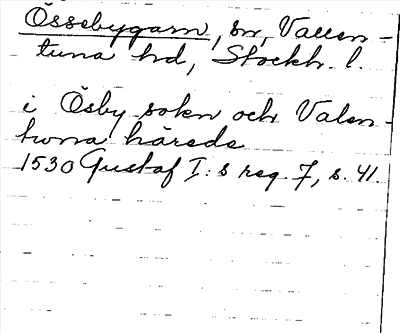 Össebygarn, sn, Vallen-
tuna hd, Stockh. l.
i Ösby sokn och Valen-
tuna härede
1530 Gustaf I:s reg. 7, s. 41.